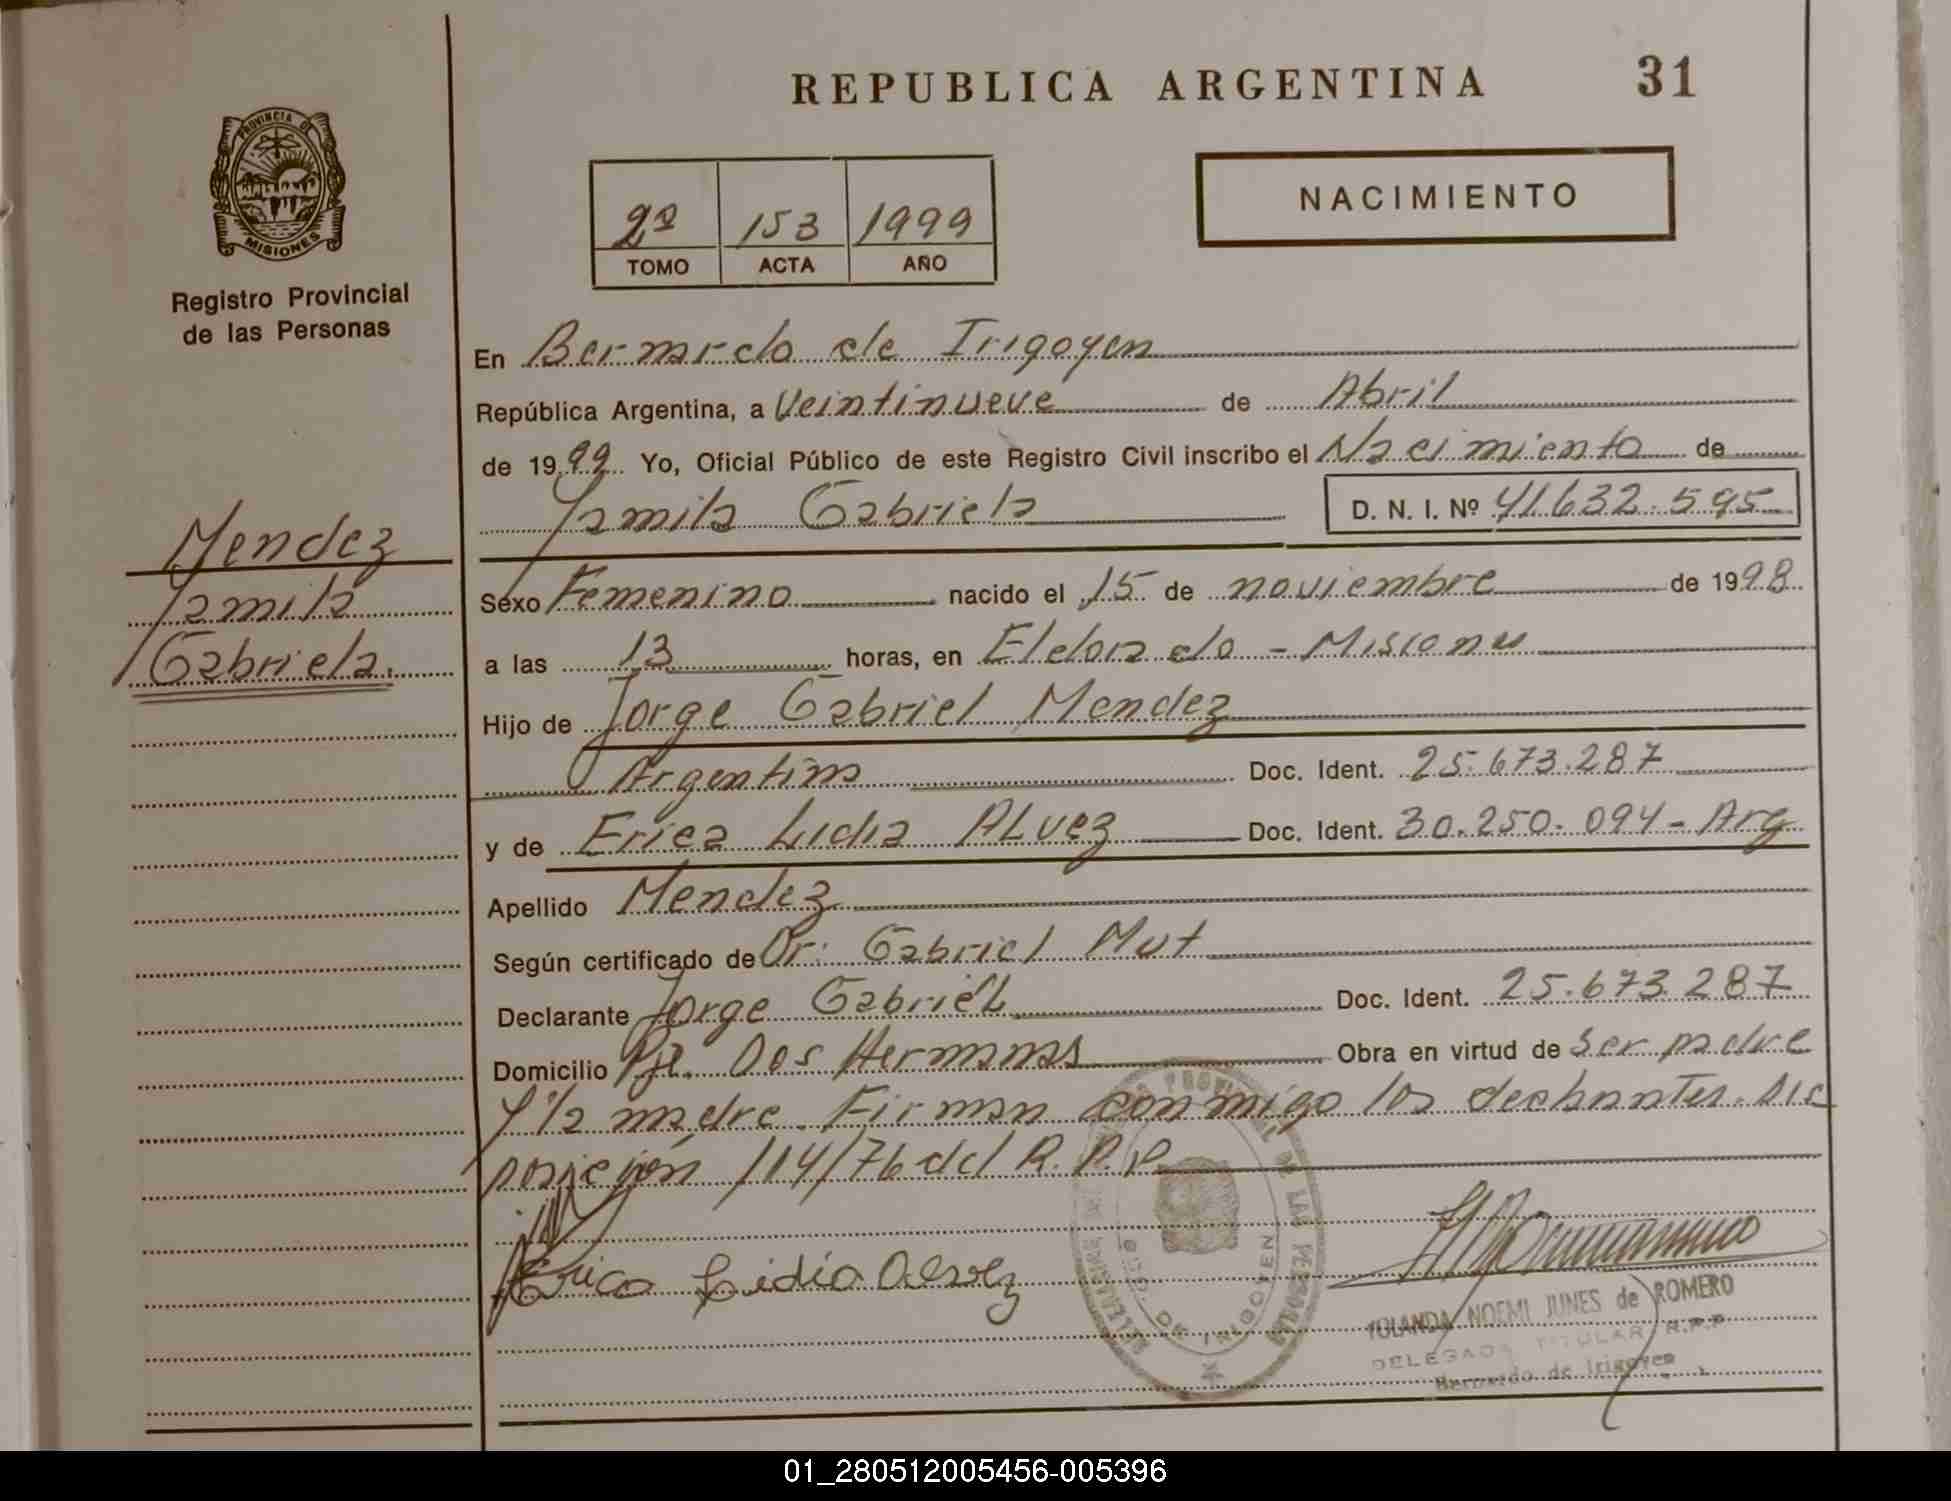 REPUBLICA ARGENTINA 31
PROVINCIA DE
MISIONES
Registro Provincial
de las Personas
2º 153 1999
TOMO ACTA AÑO
NACIMIENTO
En Bernardo de Irigoyen
República Argentina, a Veintinueve de Abril
de 1999 Yo, Oficial Público de este Registro Civil inscribo el Nacimiento de
Yamila Gabriela D. N. I. Nº 41.632.595
Mendez
Yamila
Gabriela.
Sexo Femenino nacido el 15 de noviembre de 1998
a las 13 horas, en Eldorado - Misiones
Hijo de Jorge Gabriel Mendez
Argentino Doc. Ident. 25.673.287
y de Erica Lidia ALvez Doc. Ident. 30.250.094 - Arg
Apellido Mendez
Según certificado de Dr. Gabriel Mut
Declarante Jorge Gabriel Doc. Ident. 25.673.287
Domicilio Pje. Dos Hermanas Obra en virtud de ser padre
y la madre. Firman conmigo los declarantes. Dis
posición 114/76 del R.P.P
Erica Lidia Alvez
REGISTRO PROVINCIAL DE LAS PERSONAS
BDO. DE IRIGOYEN
YOLANDA NOEMI JUNES de ROMERO
DELEGADA TITULAR R.P.P
Bernardo de Irigoyen
01_280512005456-005396